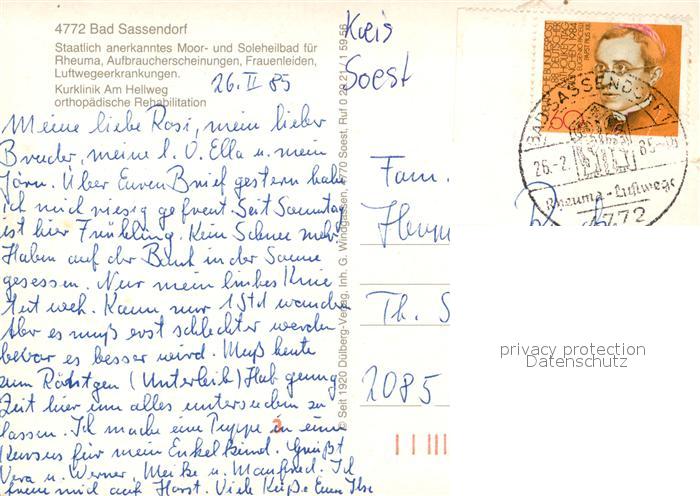 4772 Bad Sassendorf
Staatlich anerkanntes Moor- und Soleheilbad für
Rheuma, Aufbraucherscheinungen, Frauenleiden,
Luftwegeerkrankungen.
Kurklinik Am Hellweg
orthopädische Rehabilitation
26. II 85
Meine liebe Rosi, mein lieber
Bruder, meine l. O. Ella u. mein
Jörn. Über Euren Brief gestern habe
ich mich riesig gefreut. Seit Sonntag
ist hier Frühling. Kein Schnee mehr
Haben auf der Bank in der Sonne
gesessen. Nur mein linkes Knie
tut weh. Kann nur 1 Std wandern
Aber es muß erst schlechter werden
bevor es besser wird. Muß heute
zum Röntgen (Unterleib) Hab genug
Zeit hier um alles untersuchen zu
lassen. Ich mache eine Puppe in einem
Kursus für mein Enkelkind. Grüßt
Vera u. Werner, Meike u. Manfred. Ich
freue mich auf Horst. Viele Küße Eure Ilse
© Seit 1920 Dülberg-Verlag, Inh. G. Windgassen, 4770 Soest, Ruf 0 29 21 / 1 59 56
Kreis
Soest
60
BAD SASSENDORF 1
26.-2. 85
Rheuma - Luftwege
4772
Fam.
Th. S
2085
privacy protection
Datenschutz